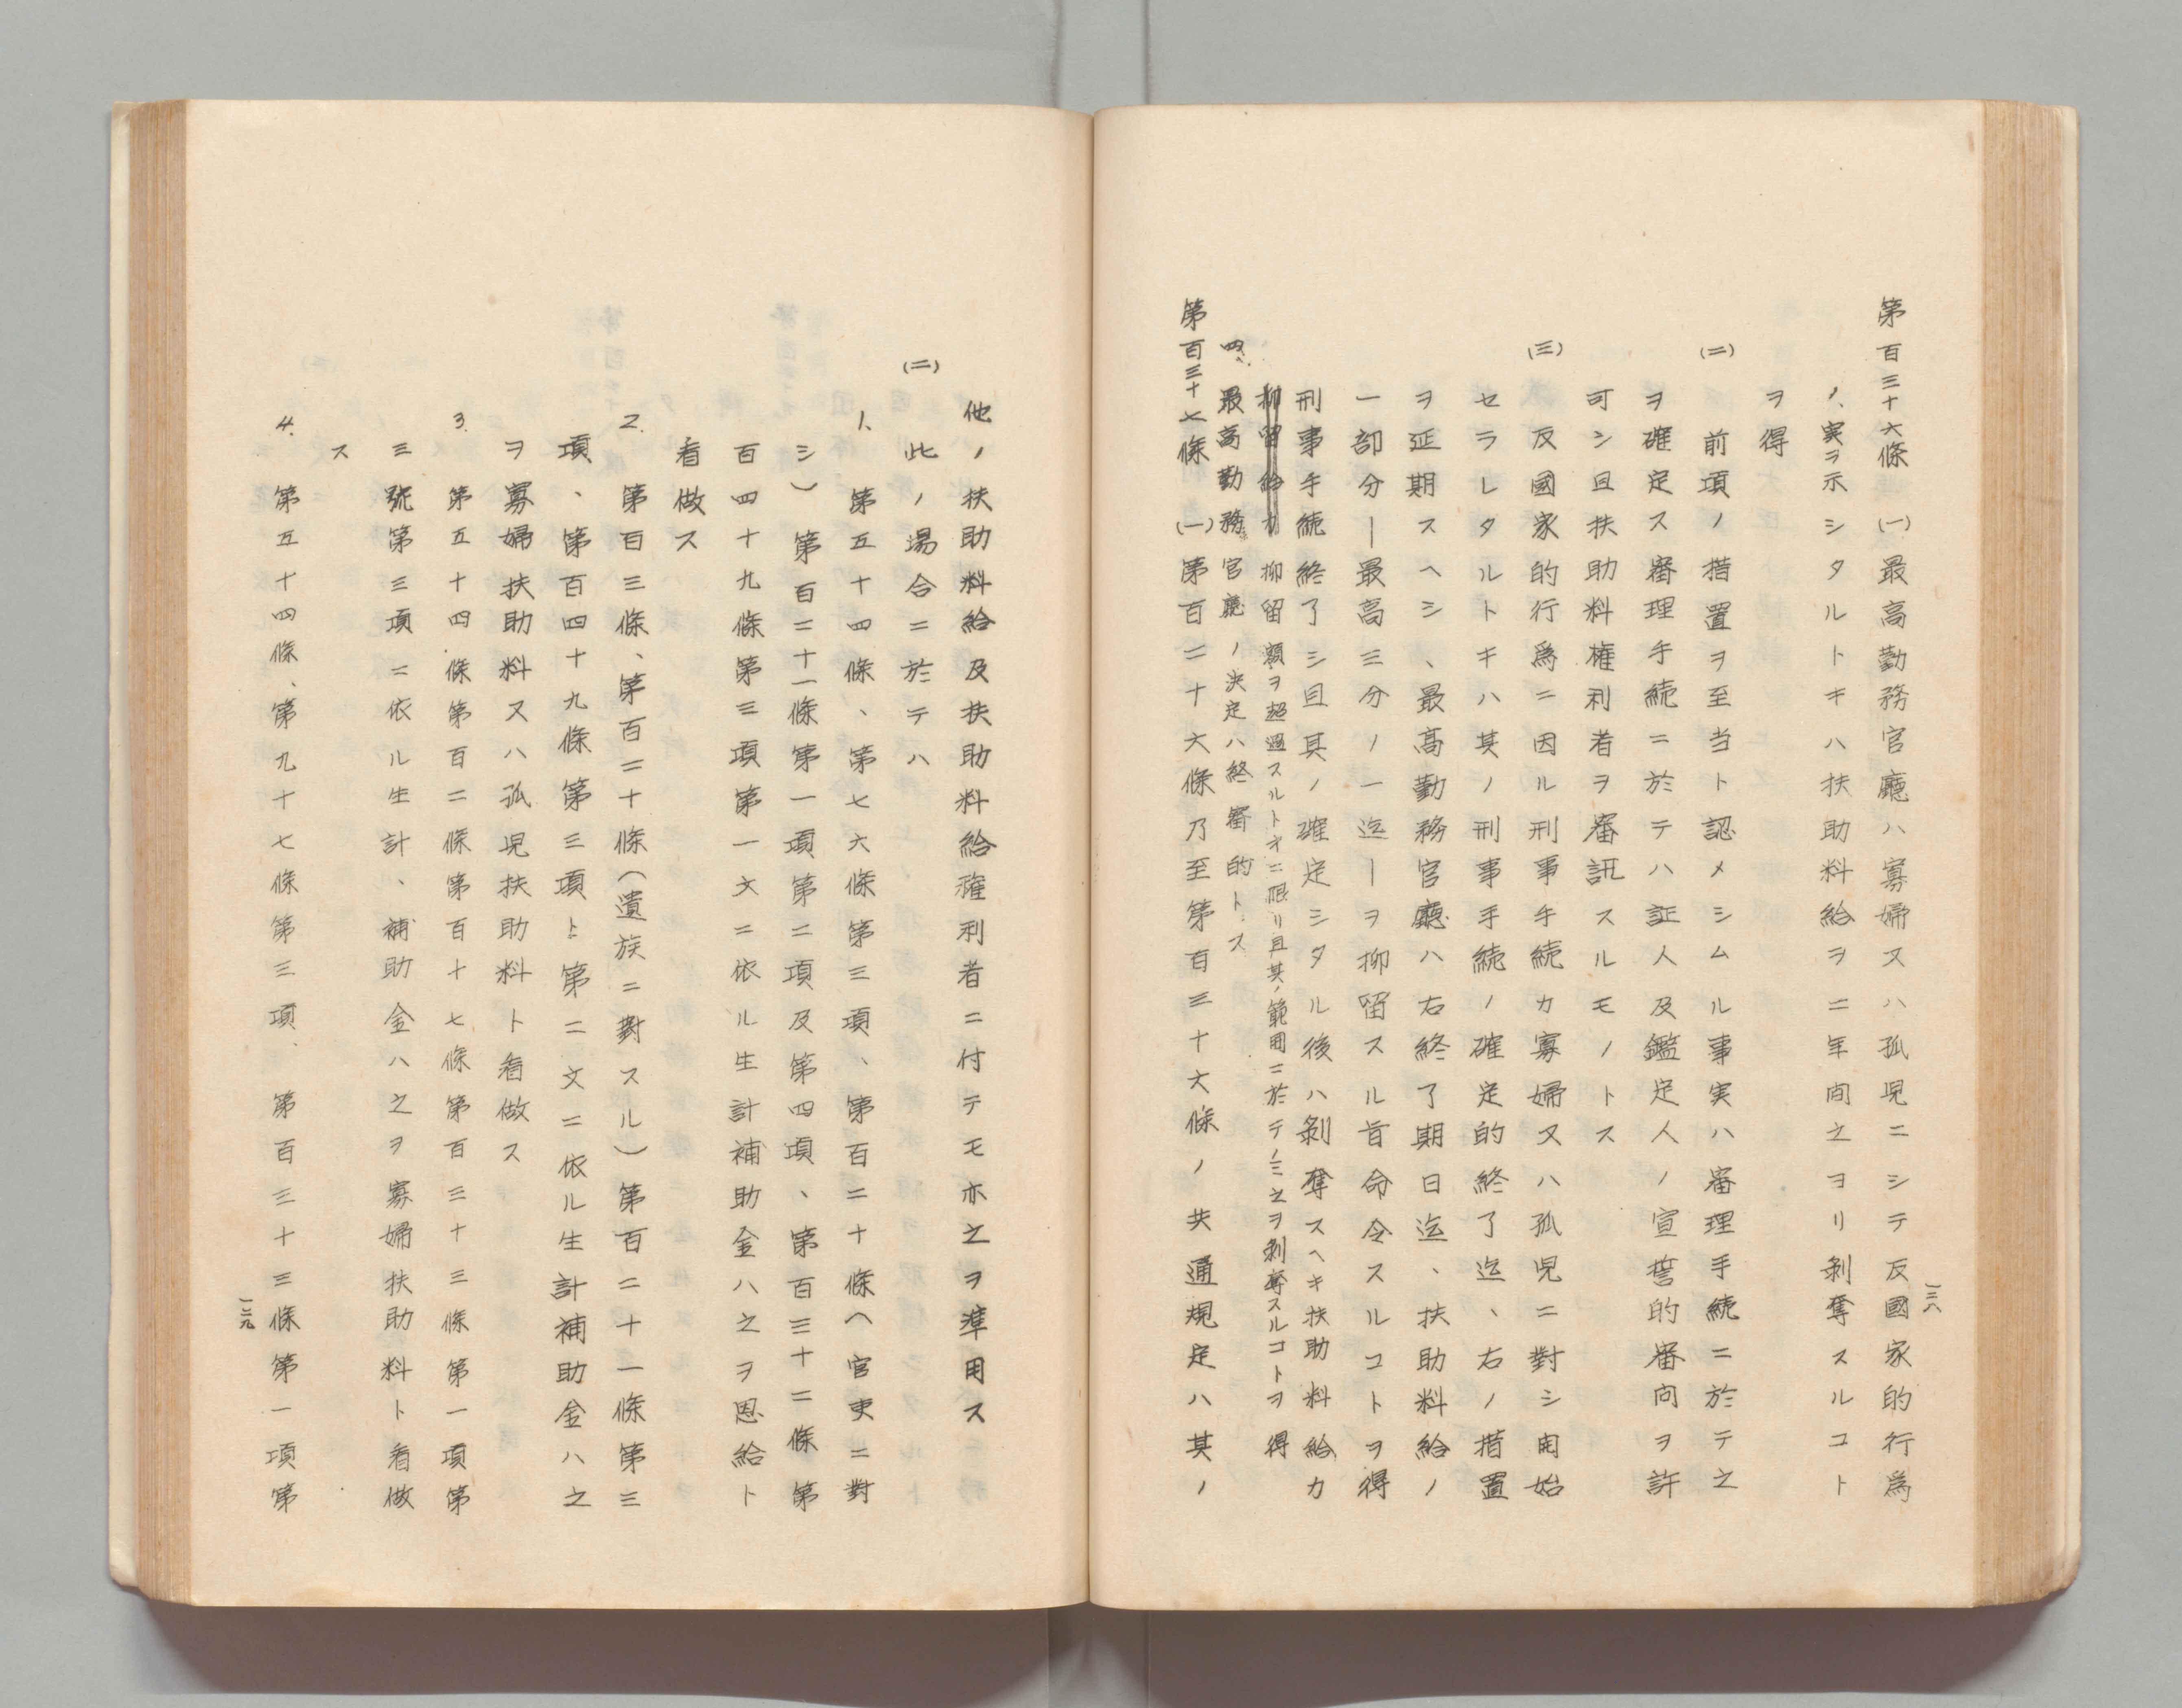 第百三十六條 (一) 最高勤務官廳ハ寡婦又ハ孤児ニシテ反國家的行爲
ノ実ヲ示シタルトキハ扶助料給ヲ二年間之ヨリ剝奪スルコト
ヲ得
(二) 前項ノ措置ヲ至当ト認メシムル事実ハ審理手続ニ於テ之
ヲ確定ス審理手続ニ於テハ証人及鑑定人ノ宣誓的審問ヲ許
可シ且扶助料権利者ヲ審訊スルモノトス
(三) 反國家的行爲ニ因ル刑事手続カ寡婦又ハ孤児ニ對シ開始
セラレタルトキハ其ノ刑事手続ノ確定的終了迄、右ノ措置
ヲ延期スヘシ、最高勤務官廳ハ右終了期日迄、扶助料給ノ
一部分ー最高三分ノ一迄ーヲ抑留スル旨命令スルコトヲ得
刑事手続終了シ且其ノ確定シタル後ハ剝奪スヘキ扶助料給カ
抑留給カ抑留額ヲ超過スルトキニ限リ且其ノ範囲ニ於テノミ之ヲ剝奪スルコトヲ得
四、最高勤務官廳ノ決定ハ終審的トス
第百三十七條 (一) 第百二十六條乃至第百三十六條ノ共通規定ハ其ノ
一三八
他ノ扶助料給及扶助料給権利者ニ付テモ亦之ヲ準用ス
(二) 此ノ場合ニ於テハ
1. 第五十四條、第七六條第三項、第百二十條(官吏ニ對
シ)第百二十一條第一項第二項及第四項、第百三十二條第
百四十九條第三項第一文ニ依ル生計補助金ハ之ヲ恩給ト
看做ス
2. 第百三條、第百二十條(遺族ニ對スル)第百二十一條第三
項、第百四十九條第三項ト第二文ニ依ル生計補助金ハ之
ヲ寡婦扶助料又ハ孤児扶助料ト看做ス
3. 第五十四條第百二條第百十七條第百三十三條第一項第
三號第三項ニ依ル生計、補助金ハ之ヲ寡婦扶助料ト看做
ス
4. 第五十四條、第九十七條第三項、第百三十三條第一項第
一三九